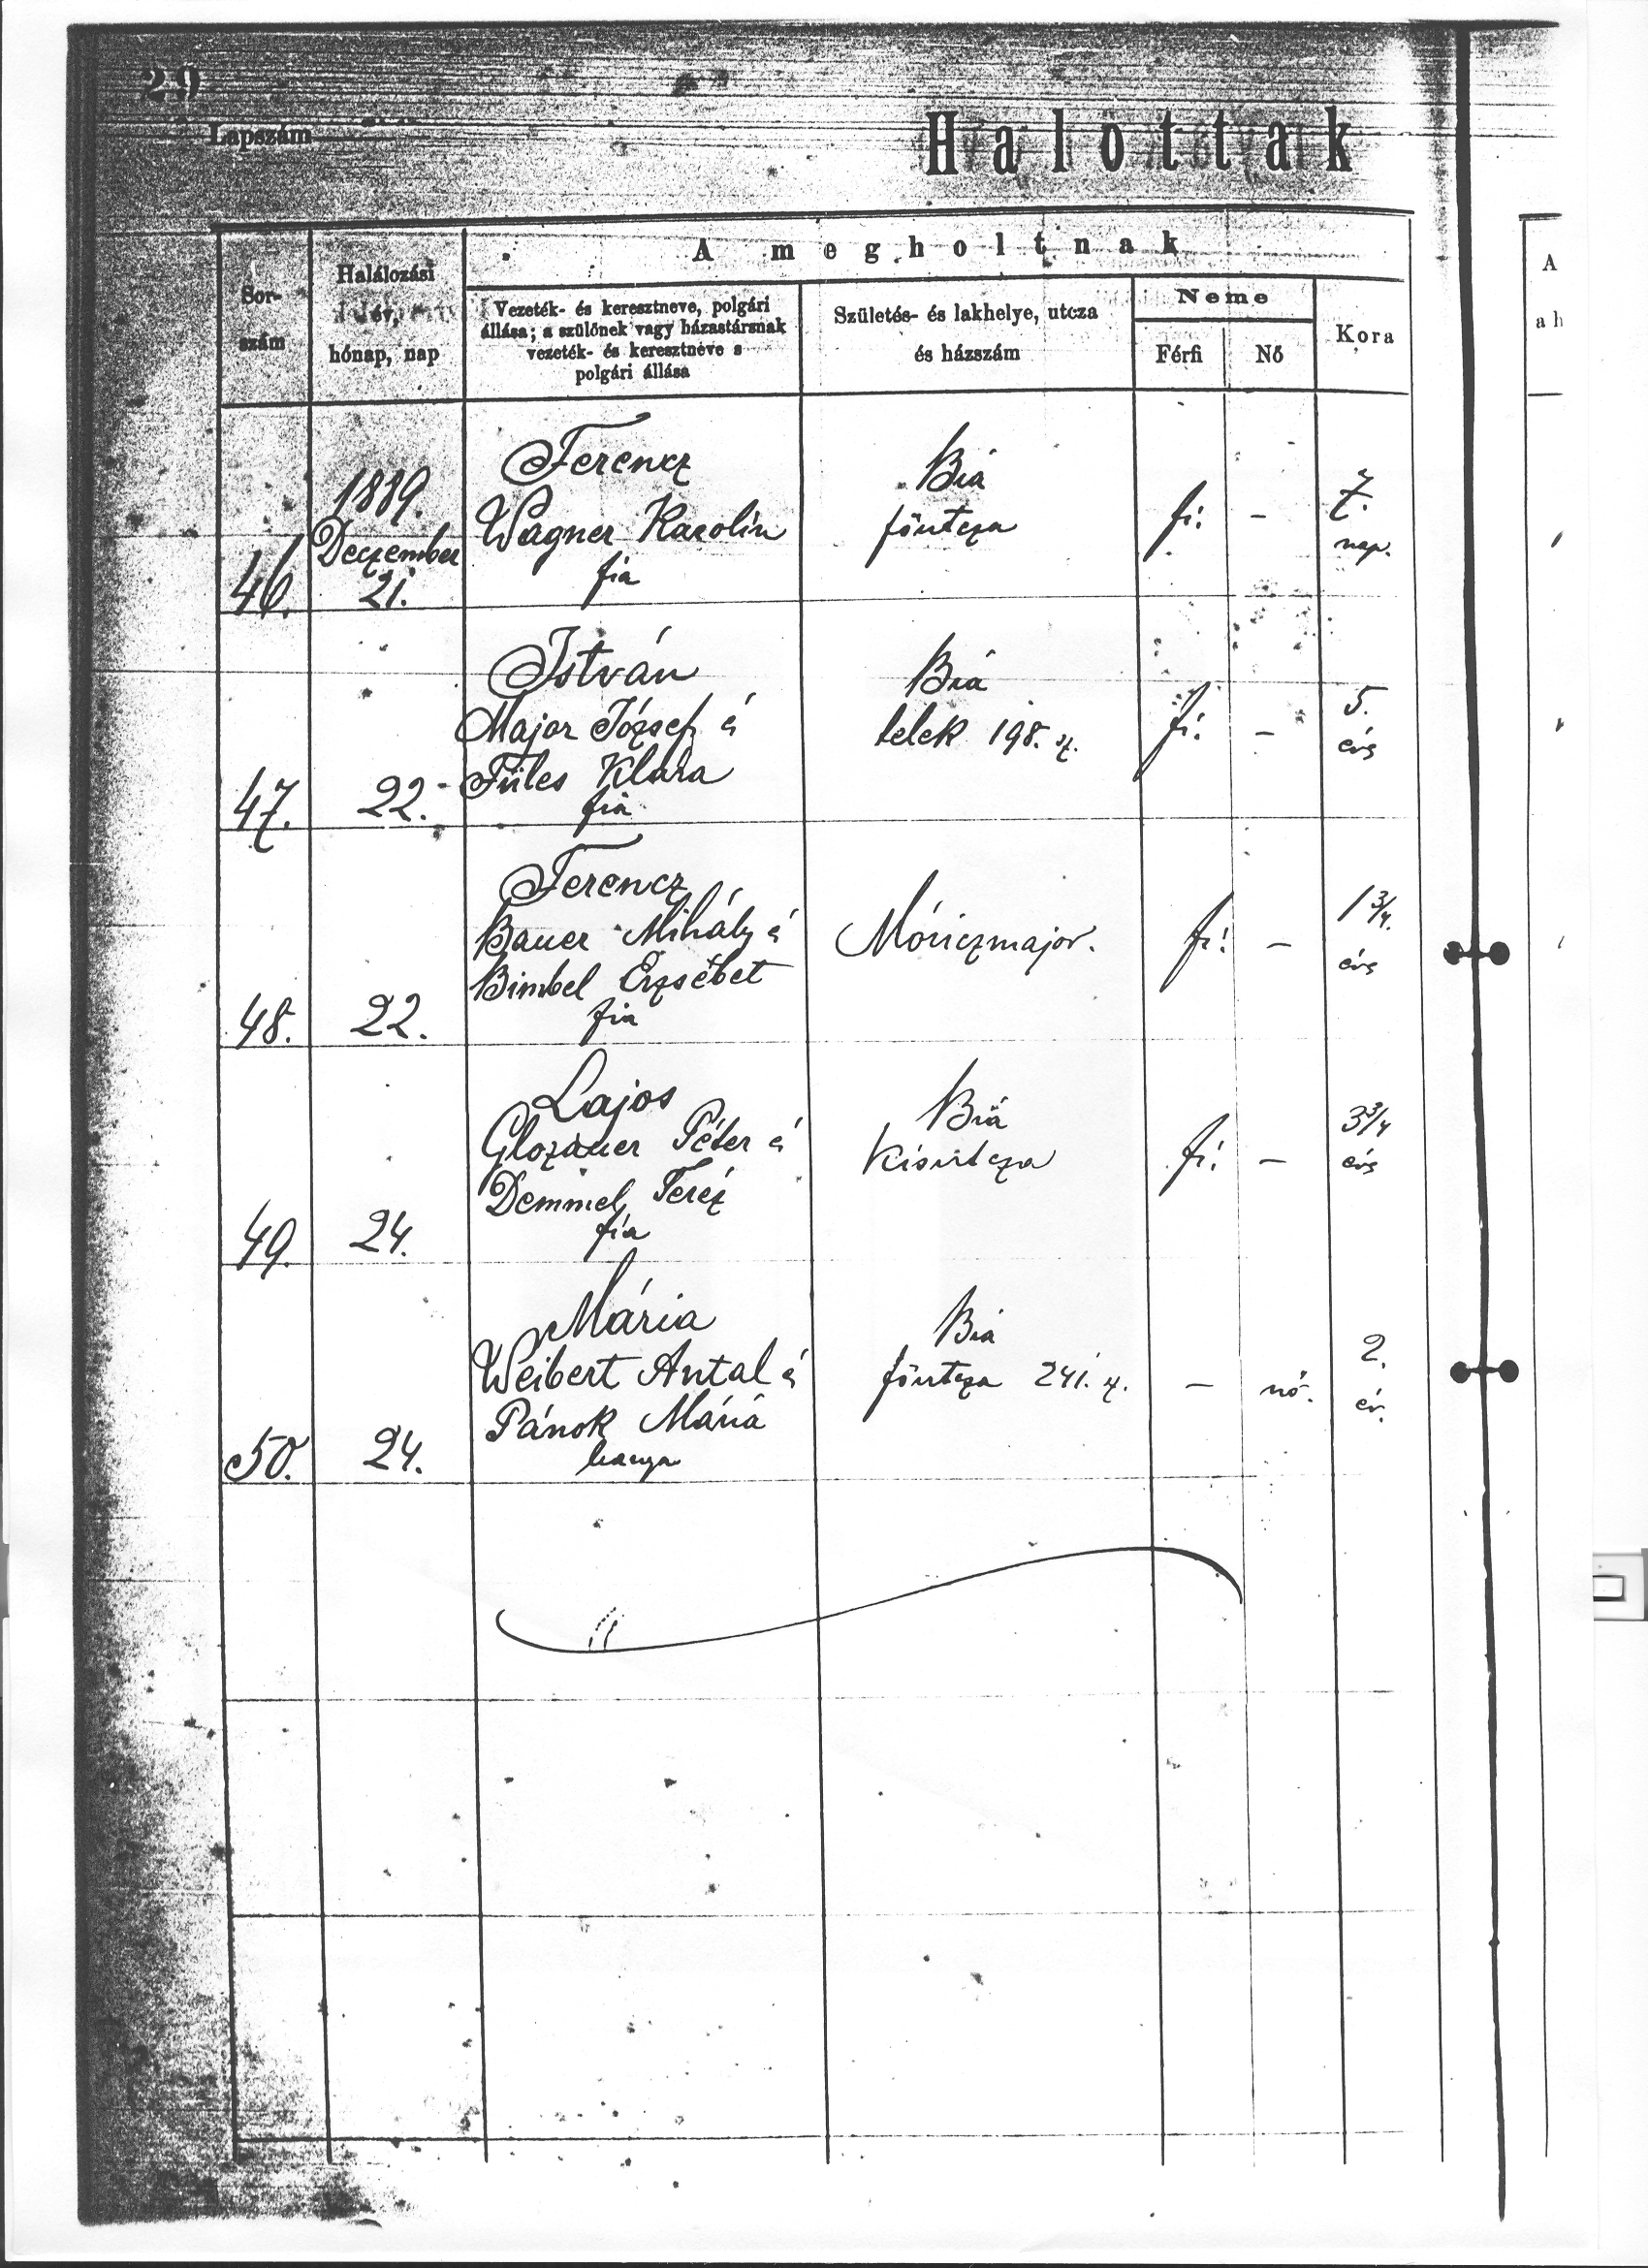 29
Lapszám
Halottak
A megholtnak
Sor-
szám
Halálozási
év,
hónap, nap
Vezeték- és keresztneve, polgári
állása; a szülőnek vagy házastársnak
vezeték- és keresztneve s
polgári állása
Születés- és lakhelye, utcza
és házszám
Neme
Férfi
Nő
Kora
A
a h
46.
1889.
Deczember
21.
Ferencz
Wagner Karolin
fia
Bia
főutcza
fi.
-
7.
nap.
47.
22.
István
Major József é
Füles Klára
fia
Bia
telek 198. sz.
fi.
-
5.
évs
48.
22.
Ferencz
Bauer Mihály é
Bimbel Erzsébet
fia
Móriczmajor.
fi.
-
1 3/4.
évs
49.
24.
Lajos
Glozauer Péter é
Demmel Teréz
fia
Bia
Kisutcza
fi.
-
3 3/4
évs
50.
24.
Mária
Weibert Antal é
Pánok Mária
leanya
Bia
főutcza 241. sz.
-
nő.
2.
év.